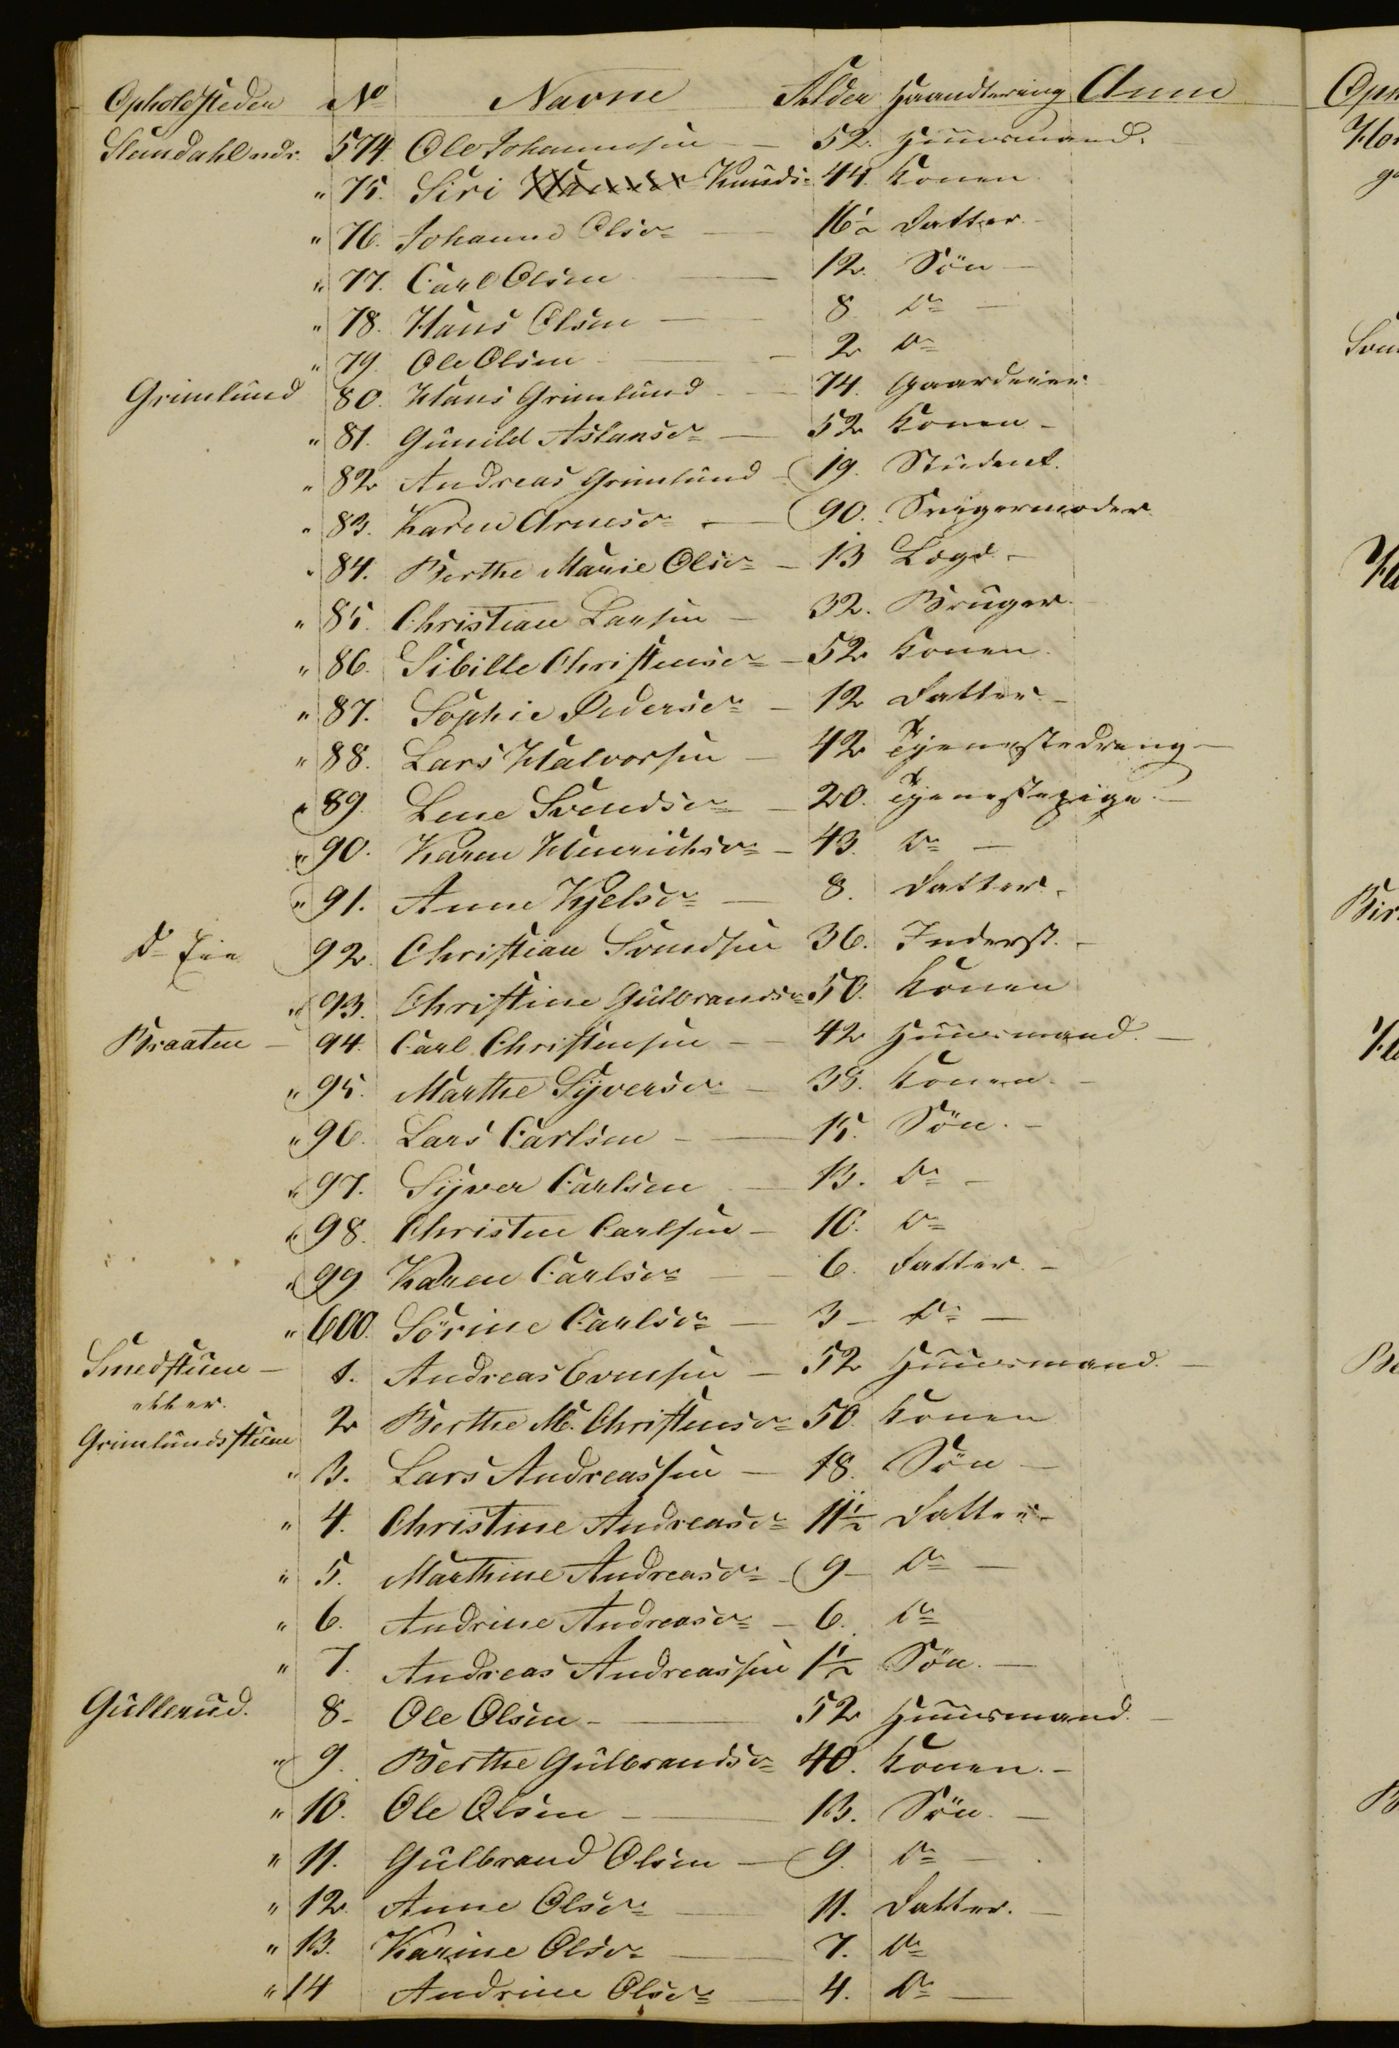 Opholdsteder No Navne Alder Haandtering Anm
574 Ole Johannesen 52. Huusmand.
" 75. Siri Knuds: 44. Konen
" 76. Johanne Olsd= 16½ Datter.
" 77. Carl Olsen 12. Søn
" 78. Hans Olsen 8. Do
" 79. Ole Olsen 2 Do
Grimlund 80. Hans Grimlund 74. Gaardeier
" 81. Gunild Aslansd= 52 Konen
" 82 Andreas Grimlund 19. Student.
" 83. Karen Arnesd= 90. Svigermoder
" 84. Berthe Marie Olsd= 13 Lægd
" 85. Christian Larsen 32. Bruger.
" 86. Sibille Christensd= 52 Konen.
" 87. Sophie Pedersd= 12 Datter
" 88. Lars Halvorsen 42 Tjenestedreng
" 89. Lene Svendsd= 20. Tjenestepige
" 90. Karen Henrichsd= 43. Do
" 91. Anne Kjelsd= 8. Datter.
Do Eie 92. Christian Svendsen 36. Inderst.
" 93. Christine Gulbrandsd= 50. Konen
Braaten 94. Carl Christensen 42 Huusmand.
" 95. Marthe Syversd= 38. Konen.
" 96. Lars Carlsen 15. Søn.
" 97. Syver Carlsen 13. Do
" 98. Christen Carlsen 10. Do
" 99 Karen Carlsd= 6. Datter.
" 600. Sörine Carlsd= 3 Do
Smedstuen 1. Andreas Evensen 52 Huusmand.
eller.
Grimlundsstuen 2 Berthe M. Christensd= 50 Konen
" 3. Lars Andreassen 18. Søn
" 4. Christine Andreasd= 11½ Datter
" 5. Marthine Andreasd= 9 Do
" 6. Andrine Andreasd= 6. Do
" 7. Andreas Andreassen 1½ Søn.
Gullerud. 8 Ole Olsen 52 Huusmand.
" 9. Berthe Gulbrandsd= 40. Konen.
" 10. Ole Olsen 13. Søn.
" 11. Gulbrand Olsen 9. Do
" 12. Anne Olsd= 11. Datter.
" 13. Karine Olsd= 7. Do
" 14 Andrine Olsd= 4. Do